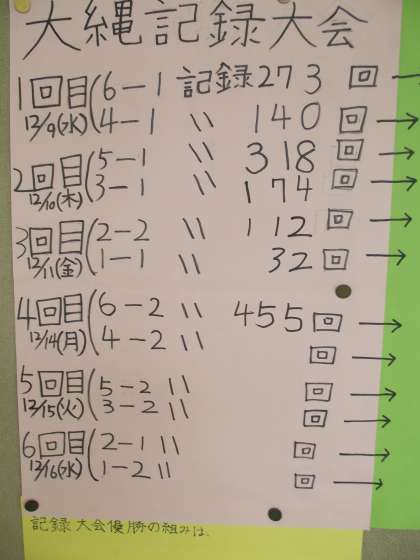 大縄記録大会
1回目 (6-1 記録273回→
12/9(水) 4-1 〃 140回→
2回目 (5-1 〃 318回→
12/10(木) 3-1 〃 174回→
3回目 (2-2 〃 112回→
12/11(金) 1-1 〃 32回→
4回目 (6-2 〃 455回→
12/14(月) 4-2 〃 回→
5回目 (5-2 〃 回→
12/15(火) 3-2 〃 回→
6回目 (2-1 〃 回→
12/16(水) 1-2 〃 回→
記録大会優勝の組みは、